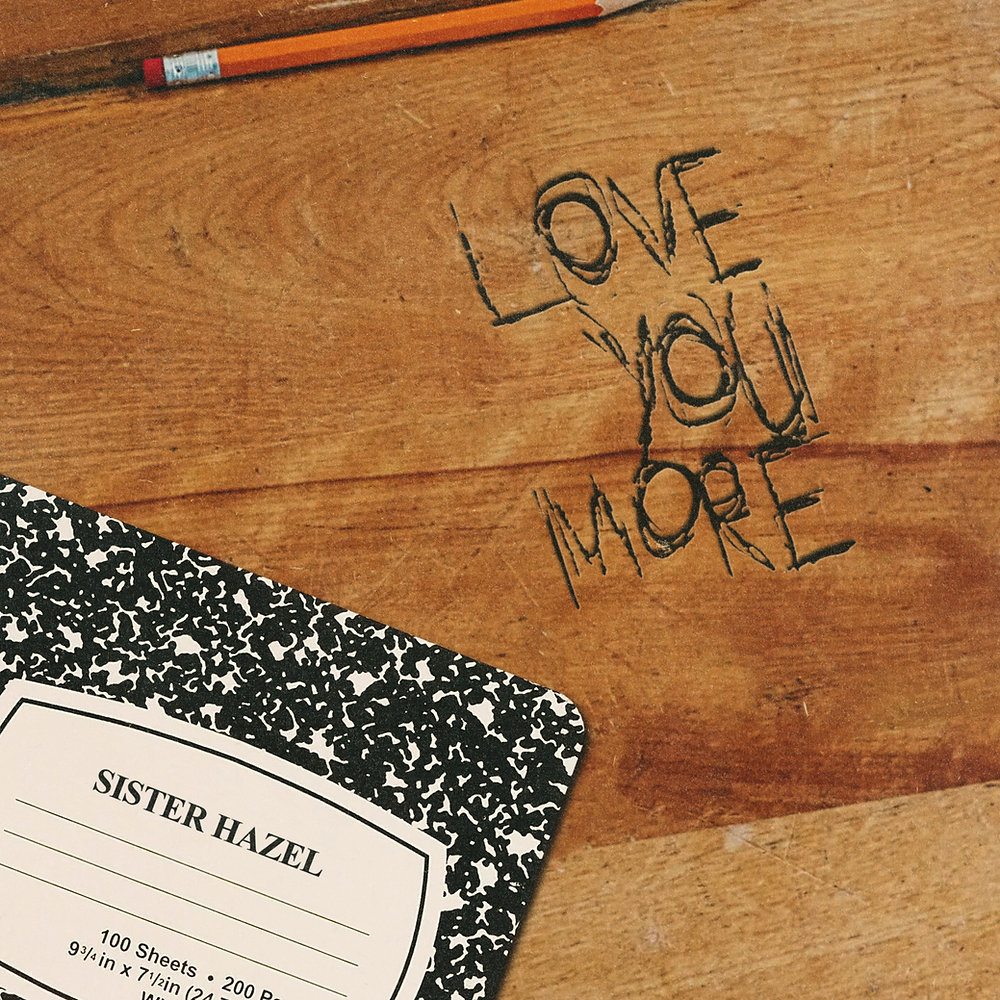 LOVE
YOU
MORE
SISTER HAZEL
100 Sheets • 200
9 3/4 in x 7 1/2in (24